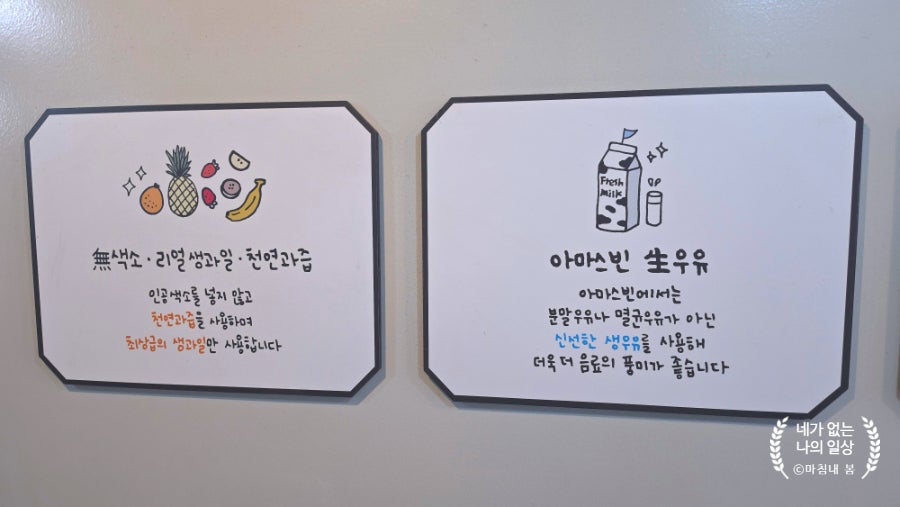 無색소·리얼생과일·천연과즙
인공색소를 넣지 않고
천연과즙을 사용하며
최상급의 생과일만 사용합니다
Fresh
Milk
아마스빈 生우유
아마스빈에서는
분말우유나 멸균우유가 아닌
신선한 생우유를 사용해
더욱 더 음료의 풍미가 좋습니다
네가 없는
나의 일상
©마침내 봄